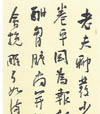 老夫聊發少
卷平岡為報
酣胸膽尚開
會挽雕弓如滿